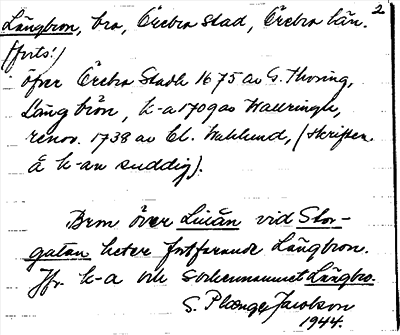 2
Långbron, bro, Örebro stad, Örebro län.
(forts.)
öfver Örebro Stadh 1675 av G. Thoring,
Lång Brön, k-a 1709 av Wallringh,
renov. 1738 av El. Wahlund, (skriften
å k-an suddig).
Bron över Lillån vid Stor-
gatan heter fortfarande Långbron.
Jfr k-a och sockennamnet Längbro.
S. Jacobson
1944.